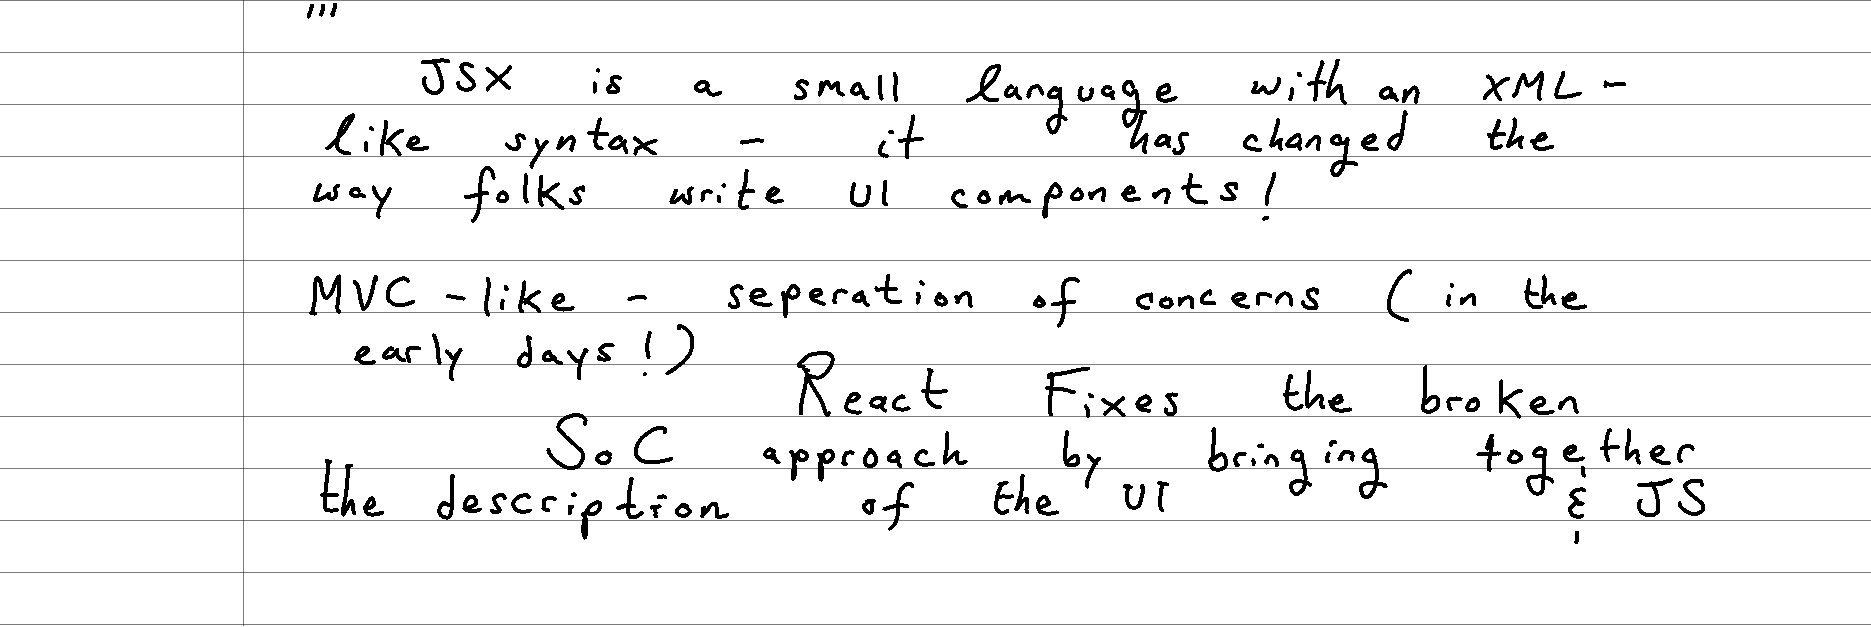 "'
JSX is a small language with an XML-
like syntax - it has changed the
way folks write UI components!
MVC-like - seperation of concerns (in the
early days!)
React Fixes the broken
SoC approach by bringing together
the description of the UI & JS